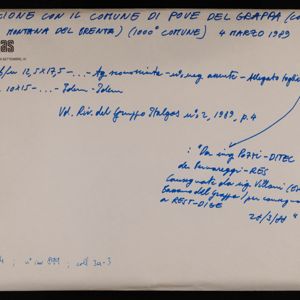 CIONE CON IL COMUNE DI POVE DEL GRAPPA (CO
MONTANA DEL BRENTA) (1000° COMUNE) 4 MARZO 1989
as
b/n 12,5x17,5 -... - Ag. sconosciuta - n° neg. assente - Allegato foglio
10x15 -... - Idem - Idem
Vd. Riv. del Gruppo Italgas n° 2, 1989, p. 4
: "Da ing. Pozzi - DITEC
Consegnate da ing. Villani
Bassano del Grappa, per consegna
a REST-DIGE
n° inv 999 ; coll 3a-3